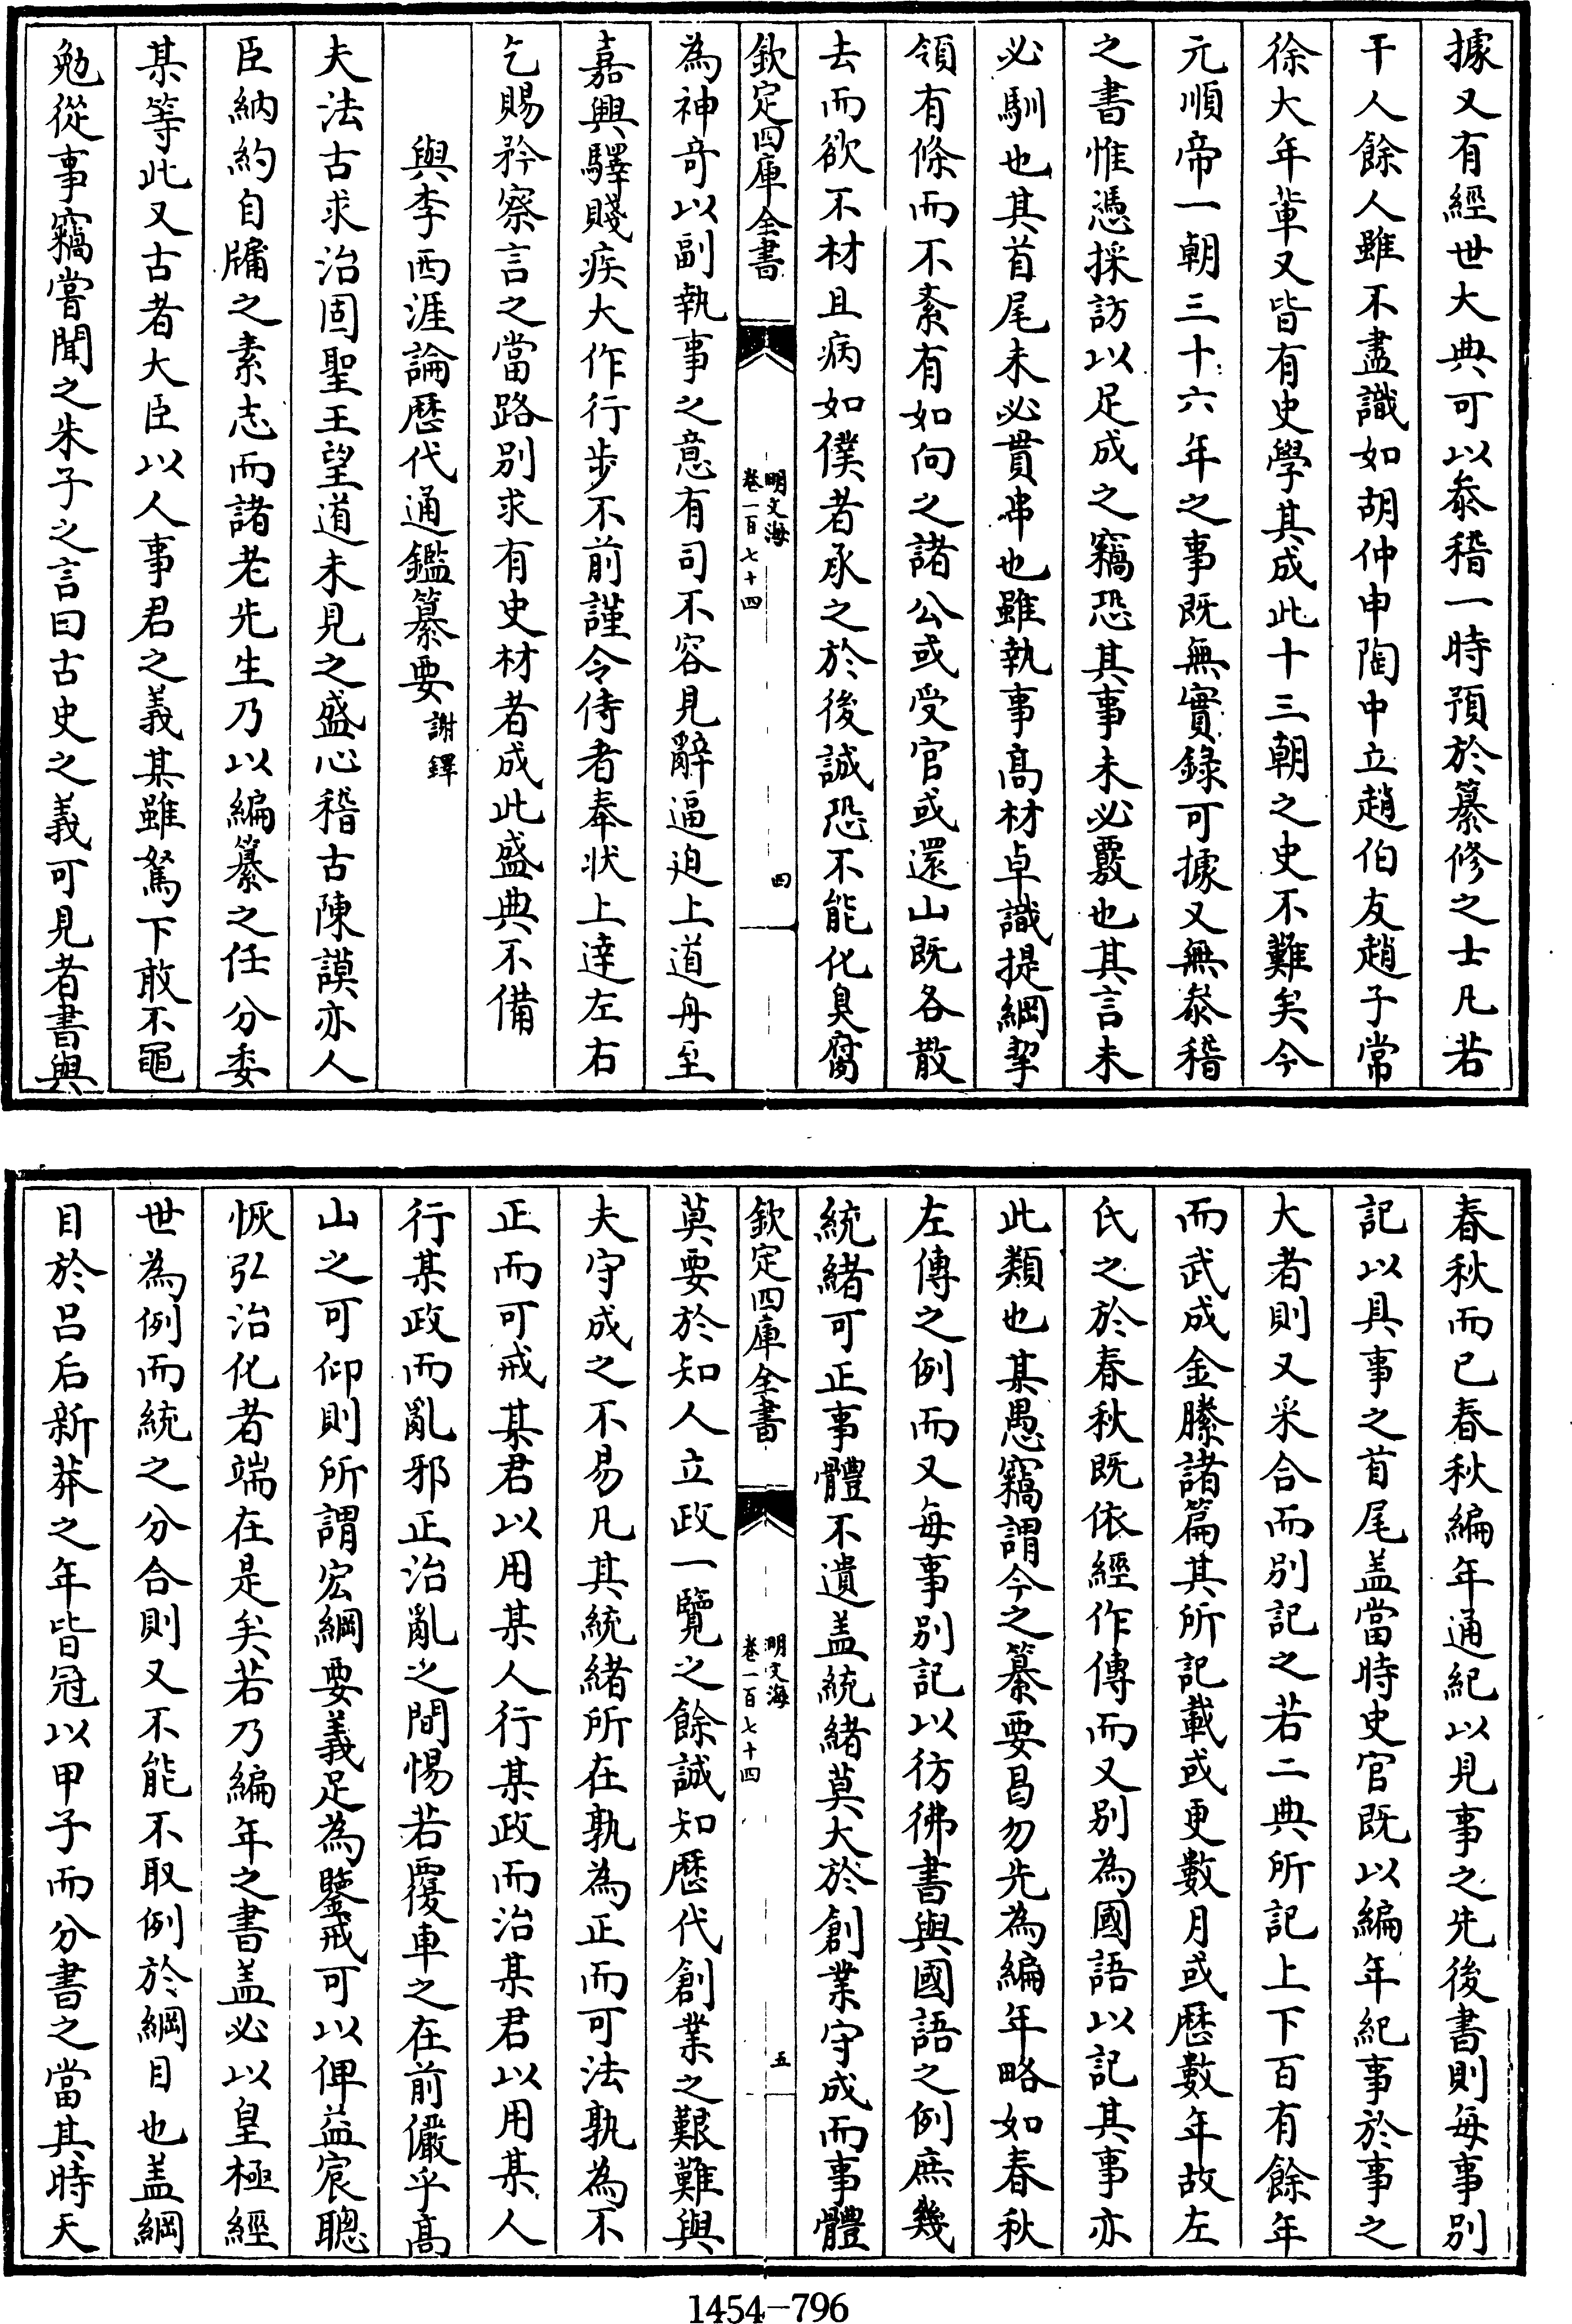 據又有經世大典可以叅稽一時預於纂修之士凡若
干人餘人雖不盡識如胡仲申陶中立趙伯友趙子常
徐大年輩又皆有史學其成此十三朝之史不難矣今
元順帝一朝三十六年之事既無實錄可據又無叅稽
之書惟憑採訪以足成之竊恐其事未必覈也其言未
必馴也其首尾未必貫串也雖執事髙材卓識提綱挈
領有條而不紊有如向之諸公或受官或還山既各散
去而欲不材且病如僕者承之於後誠恐不能化臭腐
欽定四庫全書
明文海
卷一百七十四
四
為神竒以副執事之意有司不容見辭逼迫上道舟至
嘉興驛賤疾大作行步不前謹令侍者奉狀上逹左右
乞賜矜察言之當路别求有史材者成此盛典不備
與李西涯論歴代通鑑纂要 謝鐸
夫法古求治固聖王望道未見之盛心稽古陳謨亦人
臣納約自牖之素志而諸老先生乃以編纂之任分委
某等此又古者大臣以人事君之義某雖駑下敢不黽
勉從事竊嘗聞之朱子之言曰古史之義可見者書與
春秋而已春秋編年通紀以見事之先後書則每事别
記以具事之首尾盖當時史官既以編年紀事於事之
大者則又采合而别記之若二典所記上下百有餘年
而武成金縢諸篇其所記載或更數月或歴數年故左
氏之於春秋既依經作傳而又别為國語以記其事亦
此類也某愚竊謂今之纂要曷勿先為編年略如春秋
左傳之例而又每事别記以彷彿書與國語之例庶幾
統緒可正事體不遺盖統緒莫大於創業守成而事體
欽定四庫全書
明文海
卷一百七十四
五
莫要於知人立政一覽之餘誠知歴代創業之艱難與
夫守成之不易凡其統緒所在孰為正而可法孰為不
正而可戒某君以用某人行某政而治某君以用某人
行某政而亂邪正治亂之間惕若覆車之在前儼乎髙
山之可仰則所謂宏綱要義足為鑒戒可以俾益宸聰
恢弘治化者端在是矣若乃編年之書盖必以皇極經
世為例而統之分合則又不能不取例於綱目也盖綱
目於吕后新莽之年皆冠以甲子而分書之當其時天
1454—796